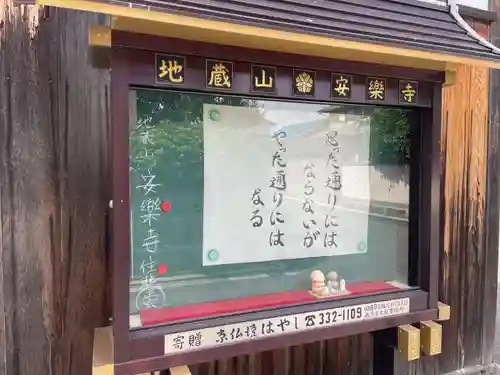 地蔵山 安楽寺
思った通りには
ならないが
やった通りには
なる
地蔵山 安樂寺 住職
寄贈 京仏壇はやし ☎ 332-1109